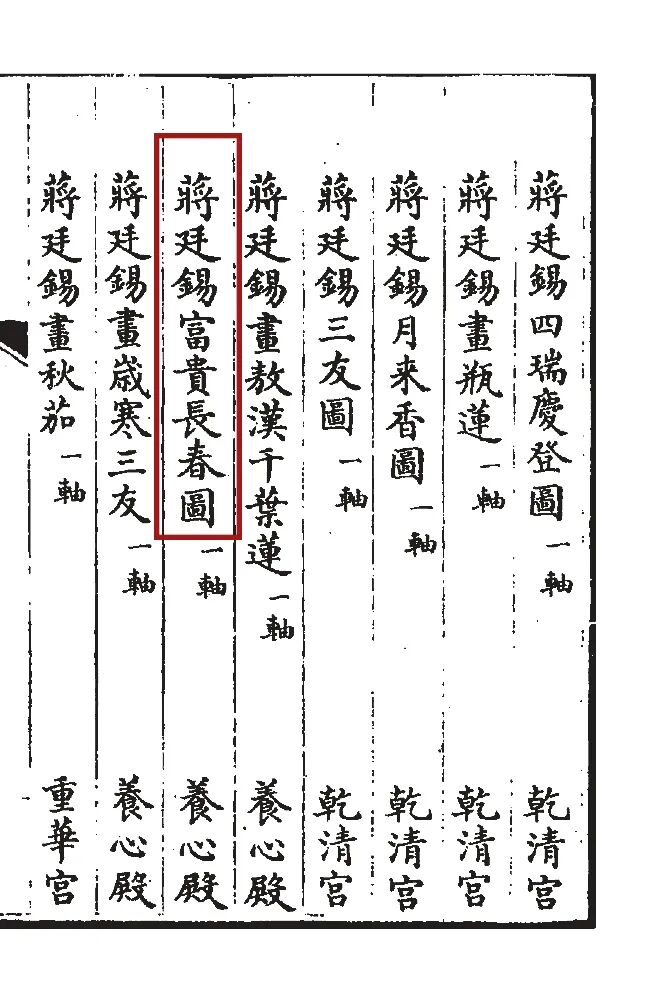 蔣廷錫四瑞慶登圖一軸 乾清宮
蔣廷錫畫瓶蓮一軸 乾清宮
蔣廷錫月来香圖一軸 乾清宮
蔣廷錫三友圖一軸 乾清宮
蔣廷錫畫敖漢千葉蓮一軸 養心殿
蔣廷錫富貴長春圖一軸 養心殿
蔣廷錫畫歲寒三友一軸 養心殿
蔣廷錫畫秋茄一軸 重華宮